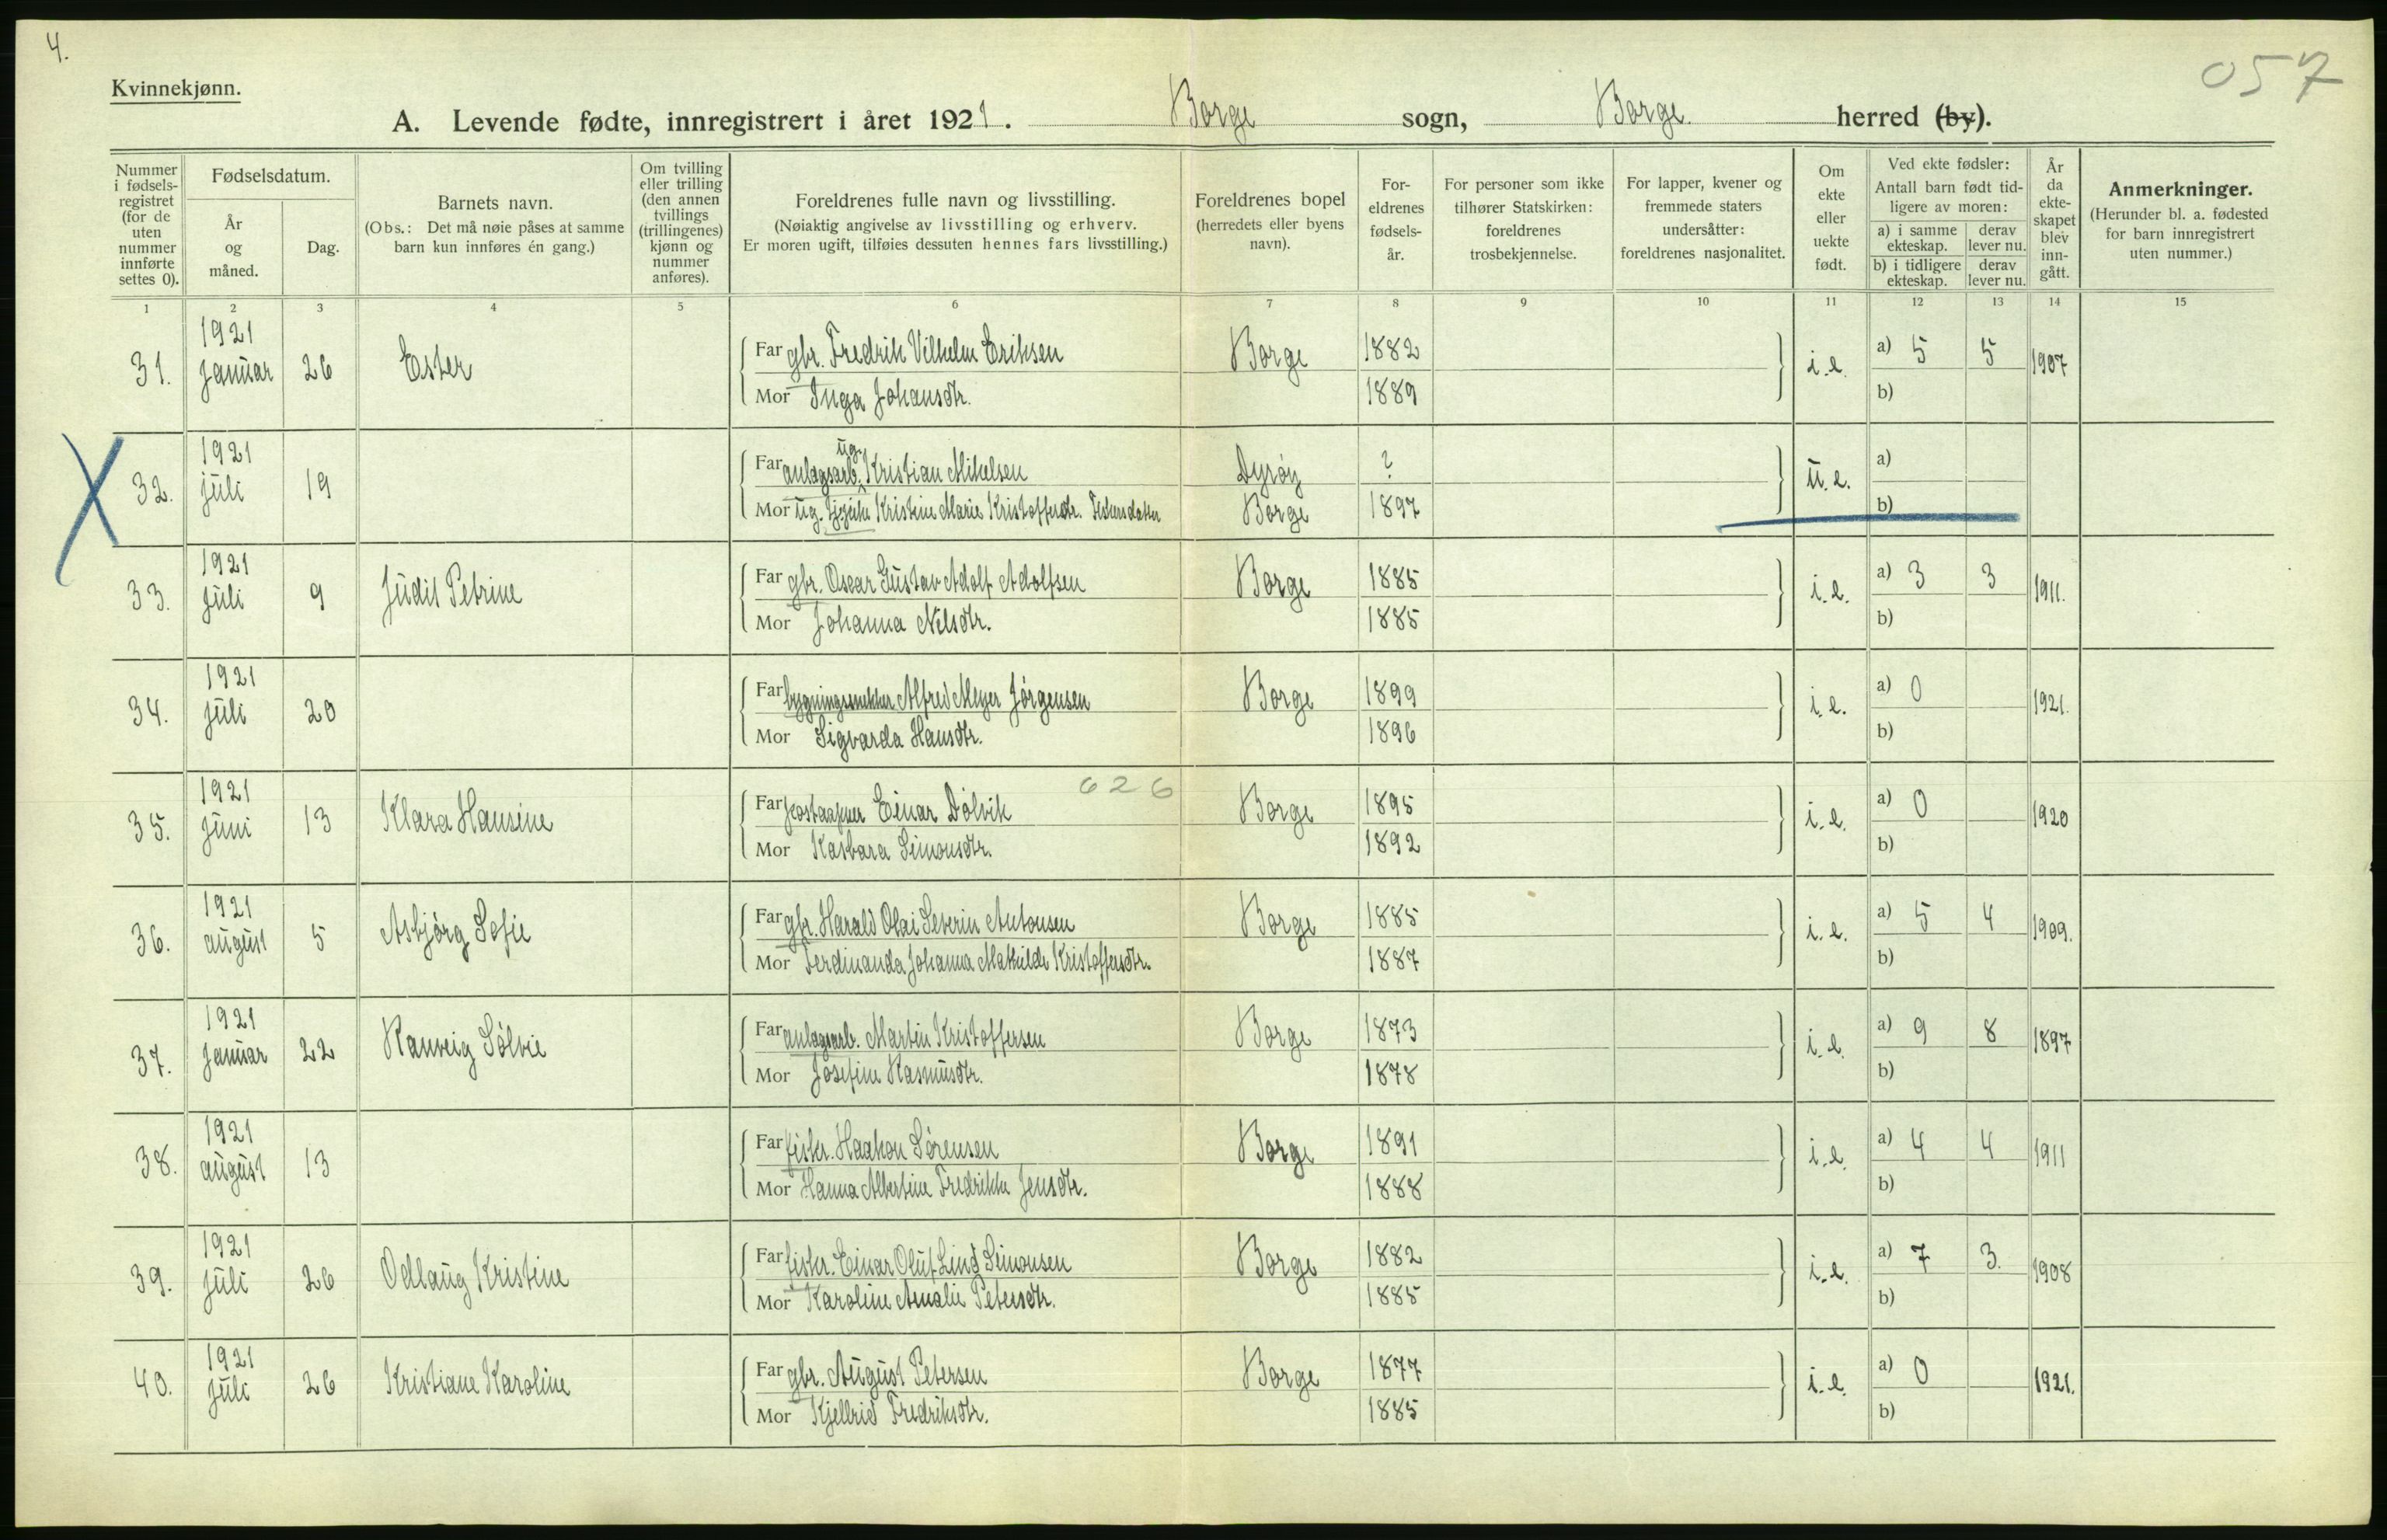 4.
057
Kvinnekjønn.
A. Levende fødte, innregistrert i året 1921. Borge sogn, Borge. herred (by).
Nummer i fødsels-registret (for de uten nummer innførte settes 0).
Fødselsdatum.
År og måned.
Dag.
Barnets navn.
(Obs.: Det må nøie påses at samme barn kun innføres én gang.)
Om tvilling eller trilling (den annen tvillings (trillingenes) kjønn og nummer anføres).
Foreldrenes fulle navn og livsstilling.
(Nøiaktig angivelse av livsstilling og erhverv.
Er moren ugift, tilføies dessuten hennes fars livsstilling.)
Foreldrenes bopel
(herredets eller byens navn).
For-eldrenes fødsels-år.
For personer som ikke tilhører Statskirken: foreldrenes trosbekjennelse.
For lapper, kvener og fremmede staters undersåtter: foreldrenes nasjonalitet.
Om ekte eller uekte født.
Ved ekte fødsler:
Antall barn født tid-ligere av moren:
a) i samme ekteskap.
derav lever nu.
b) i tidligere ekteskap.
derav lever nu.
År da ekte-skapet blev inn-gått.
Anmerkninger.
(Herunder bl. a. fødested for barn innregistrert uten nummer.)
1 2 3 4 5 6 7 8 9 10 11 12 13 14 15
31. 1921 Januar 26 Ester Far gbr. Fredrik Vilhelm Eriksen Borge 1882 i.e. a) 5 5 1907
Mor Inga Johansdtr. 1889 b)
32. 1921 juli 19 Far anlagsarb. ug. Kristian Mikelsen Dyrøy ? u.e. a)
Mor ug. Kristine Marie Kristoffersdtr. Borge 1897 b)
33. 1921 juli 9 Judit Petrine Far gbr. Oscar Gustav Adolf Adolfsen Borge 1885 i.e. a) 3 3 1911.
Mor Johanna Nilsdtr. 1885 b)
34. 1921 juli 20 Far bygningssnekker Alfred Meyer Jørgensen Borge 1899 i.e. a) 0 1921.
Mor Sigvarda Hansdtr. 1896 b)
626
35. 1921 juni 13 Klara Hansine Far Einar Dølvik Borge 1895 i.e. a) 0 1920
Mor Kasbara Simonsdtr. 1892 b)
36. 1921 august 5 Asbjørg Sofie Far gbr. Harald Olai Severin Antonsen Borge 1885 i.e. a) 5 4 1909.
Mor Ferdinanda Johanna Mathilde Kristoffersdtr. 1887 b)
37. 1921 Januar 22 Ranveig Sølvie Far anlagsarb. Martin Kristoffersen Borge 1873 i.e. a) 9 8 1897
Mor Josefine Rasmusdtr. 1878 b)
38. 1921 august 13 Far fisker. Haakon Sørensen Borge 1891 i.e. a) 4 4 1911
Mor Hanna Albertine Fredrikke Jensdtr. 1888 b)
39. 1921 juli 26 Odlaug Kristine Far fisker. Einar Oluf Lind Simonsen Borge 1882 i.e. a) 7 3. 1908
Mor Karoline Amalie Petersdtr. 1885 b)
40. 1921 juli 26 Kristiane Karoline Far gbr. August Petersen Borge 1877 i.e. a) 0 1921.
Mor Kjellrid Fredriksdtr. 1885 b)